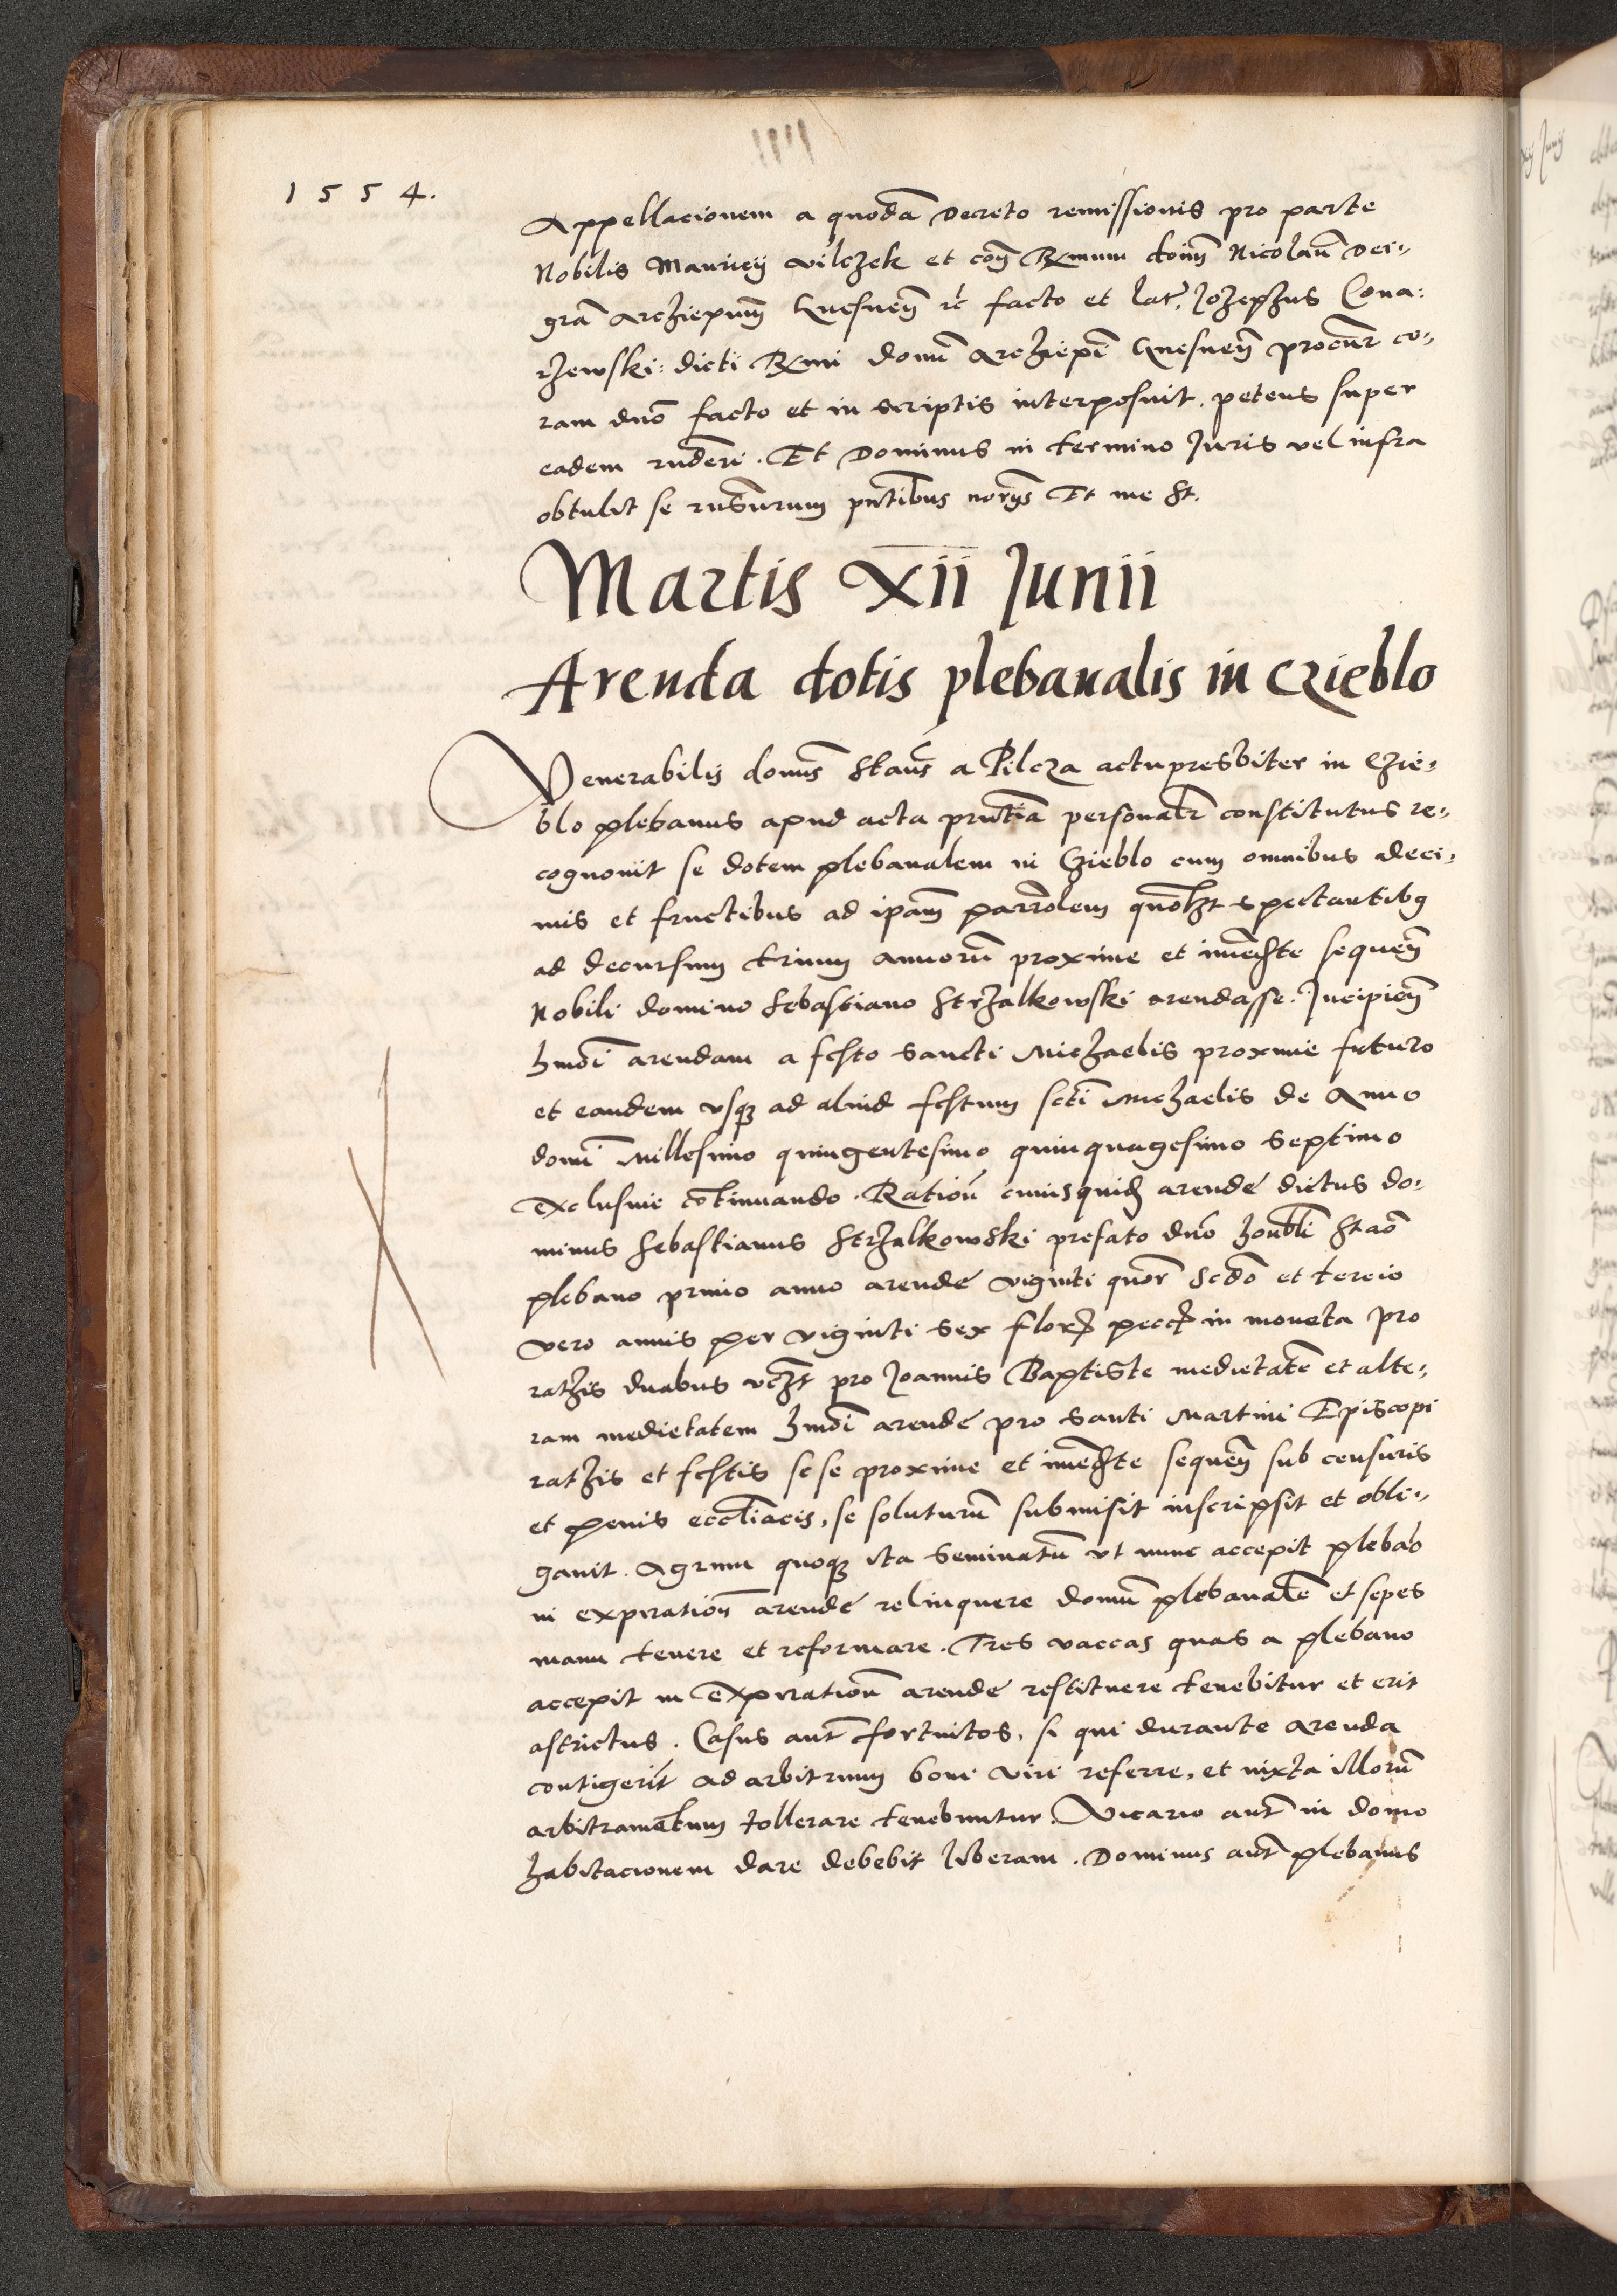 1554.
Appellacionem a quodã Decreto remissionis pro parte
Nobilis Mauricij vilczek et coñ Rxmum doim̃ Nicolaũ Dei-
grã Archiepum̃ Gnesneñ rc̃ facto et lat̃, Jozephus Cona:
rzewski: dicti Rxmi domĩ Archiepĩ Gnesneñ procur̃ co-
ram dño facto et in scriptis interposuit, petens super
eadem rñderi. Et Dominus in termino Juris vel infra
obtulit se rñsurum pñtibus norys Et me St.
Martis xii Junii
Arenda dotis plebanalis in Czieblo
Venerabilis domĩs Staũs a Pilcza actu presbiter in Czie-
blo plebanus apud acta prñtia personalr̃ constitutus re-
cognovit se dotem plebanalem in Czieblo cum omnibus deci-
mis et fructibus ad ipam̃ parrõlem quom̃lzt spectantibg
ad decursum trium annorũ proxime et imẽdte sequeñ
Nobili domino Sebastiano Strzalkowski arendasse. Incipieñ
hm̃oi arendam a festo sancti Michaelis proxime futuro
et eandem vsqz ad aliud festum scti Michaelis de Anno
domĩ Millesimo quingentesimo quinquagesimo septimo
exclusive cõtinuando. Ratioñ cuiusquid arende dictus do-
minus Sebastianus Strzalkowski prefato dño honbli Staõ
plebano primo anno arende viginti quor̃ Scdõ et tercio
vero annis per viginti sex flor pecc in moneta pro
rathis duabus vczt pro Joannis Baptiste medietatẽ et alte-
ram medietatem hm̃oi arende pro santi Martini Episcopi
rathis et festis sese proxime et imẽdte sequeñ sub censuris
et penis eccl̃iacis, se soluturũ submisit inscripsit et obli-
gavit. Agrum quoqz ita seminatũ vt nunc accepit plebão
in expiratioñ arende relinquere domũ plebanalẽ et sepes
manu tenere et reformare. Tres vaccas quas a plebano
accepit in expiratioñ arende restituere tenebitur et erit
astrictus. Casus aut̃ fortuitos, si qui durante arenda
contigerĩt ad arbitrium boni viri referre, et iuxta illorũ
arbitramẽtum tollerare tenebuntur. Vicario aut̃ in domo
habitacionem dare debebit liberam. Dominus aut̃ plebanus